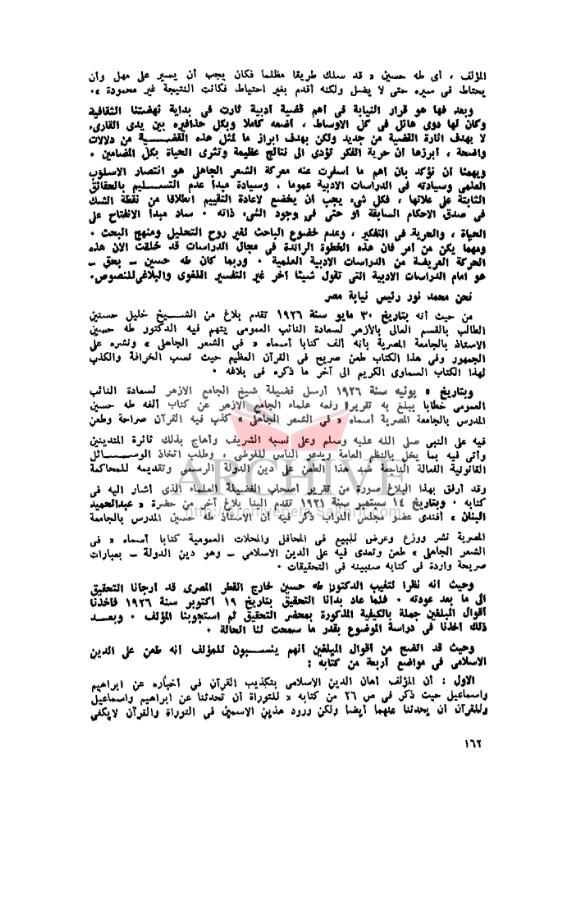 المؤلف ، أى طه حسين « قد سلك طريقا مظلما فكان يجب أن يسير على مهل وأن
يحتاط فى سيره حتى لا يضل ولكنه أقدم بغير احتياط فكانت النتيجة غير محمودة » .
وبعد فها هو قرار النيابة فى أهم قضية أدبية ثارت فى بداية نهضتنا الثقافية
وكان لها دوى هائل فى كل الأوساط ، أضعه كاملا وبكل حذافيره بين يدى القارىء
لا بهدف اثارة القضية من جديد ولكن بهدف ابراز ما تمثل هذه القضــــية من دلالات
واضحة ، أبرزها أن حرية الفكر تؤدى الى نتائج عظيمة وتثرى الحياة بكل المضامين .
ويهمنا أن نؤكد بأن أهم ما أسفرت عنه معركة الشعر الجاهلى هو انتصار الاسلوب
العلمى وسيادته فى الدراسات الادبية عموما ، وسيادة مبدأ عدم التســليم بالحقائق
الثابتة على علاتها ، فكل شىء يجب أن يخضع لاعادة التقييم انطلاقا من نقطة الشك
فى صدق الاحكام السابقة أو حتى فى وجود الشىء ذاته . ساد مبدأ الانفتاح على
الحياة ، والحرية فى التفكير ، وعدم خضوع الباحث لغير روح التحليل ومنهج البحث .
ومهما يكن من أمر فان هذه الخطوة الرائدة فى مجال الدراسات قد خلقت الآن هذه
الحركة العريضة من الدراسات الادبية العلمية . وربما كان طه حسين ــ بحق ــ
هو امام الدراسات الادبية التى تقول شيئا آخر غير التفسير اللغوى والبلاغى للنصوص.
نحن محمد نور رئيس نيابة مصر
من حيث أنه بتاريخ ٣٠ مايو سنة ١٩٢٦ تقدم بلاغ من الشــيخ خليل حسنين
الطالب بالقسم العالى بالأزهر لسعادة النائب العمومى يتهم فيه الدكتور طه حسين
الاستاذ بالجامعة المصرية بأنه ألف كتابا أسماه « فى الشعر الجاهلى » ونشره على
الجمهور وفى هذا الكتاب طعن صريح فى القرآن العظيم حيث نسب الخرافة والكذب
لهذا الكتاب السماوى الكريم الى آخر ما ذكره فى بلاغه .
وبتاريخ ٥ يونيه سنة ١٩٢٦ أرسل فضيلة شيخ الجامع الازهر لسعادة النائب
العمومى خطابا يبلغ به تقريرا رفعه علماء الجامع الأزهر عن كتاب ألفه طه حسين
المدرس بالجامعة المصرية أسماه « فى الشعر الجاهلى » كذب فيه القرآن صراحة وطعن
فيه على النبى صلى الله عليه وسلم وعلى نسبه الشريف وأهاج بذلك ثائرة المتدينين
وأتى فيه بما يخل بالنظم العامة ويدعو الناس للفوضى ، وطلب اتخاذ الوســـائل
القانونية الفعالة الناجعة ضد هذا الطعن على دين الدولة الرسمى وتقديمه للمحاكمة
وقد أرفق بهذا البلاغ صورة من تقرير أصحاب الفضيلة العلماء الذى أشار اليه فى
كتابه . وبتاريخ ١٤ سبتمبر سنة ١٩٢٦ تقدم الينا بلاغ آخر من حضرة « عبدالحميد
البنان » أفندى عضو مجلس النواب ذكر فيه أن الاستاذ طه حسين المدرس بالجامعة
المصرية نشر ووزع وعرض للبيع فى المحافل والمحلات العمومية كتابا أسماه « فى
الشعر الجاهلى » طعن وتعدى فيه على الدين الاسلامى ــ وهو دين الدولة ــ بعبارات
صريحة واردة فى كتابه سنبينه فى التحقيقات .
وحيث أنه نظرا لتغيب الدكتور طه حسين خارج القطر المصرى قد أرجأنا التحقيق
الى ما بعد عودته . فلما عاد بدأنا التحقيق بتاريخ ١٩ أكتوبر سنة ١٩٢٦ فأخذنا
أقوال المبلغين جملة بالكيفية المذكورة بمحضر التحقيق ثم استجوبنا المؤلف . وبعــد
ذلك أخذنا فى دراسة الموضوع بقدر ما سمحت لنا الحالة .
وحيث قد اتضح من أقوال المبلغين أنهم ينســـبون للمؤلف أنه طعن على الدين
الاسلامى فى مواضع أربعة من كتابه :
الاول : أن المؤلف أهان الدين الاسلامى بتكذيب القرآن فى أخباره عن ابراهيم
واسماعيل حيث ذكر فى ص ٢٦ من كتابه « للتوراة أن تحدثنا عن ابراهيم واسماعيل
وللقرآن أن يحدثنا عنهما أيضا ولكن ورود هذين الاسمين فى التوراة والقرآن لايكفى
١٦٢
ARCHIVE